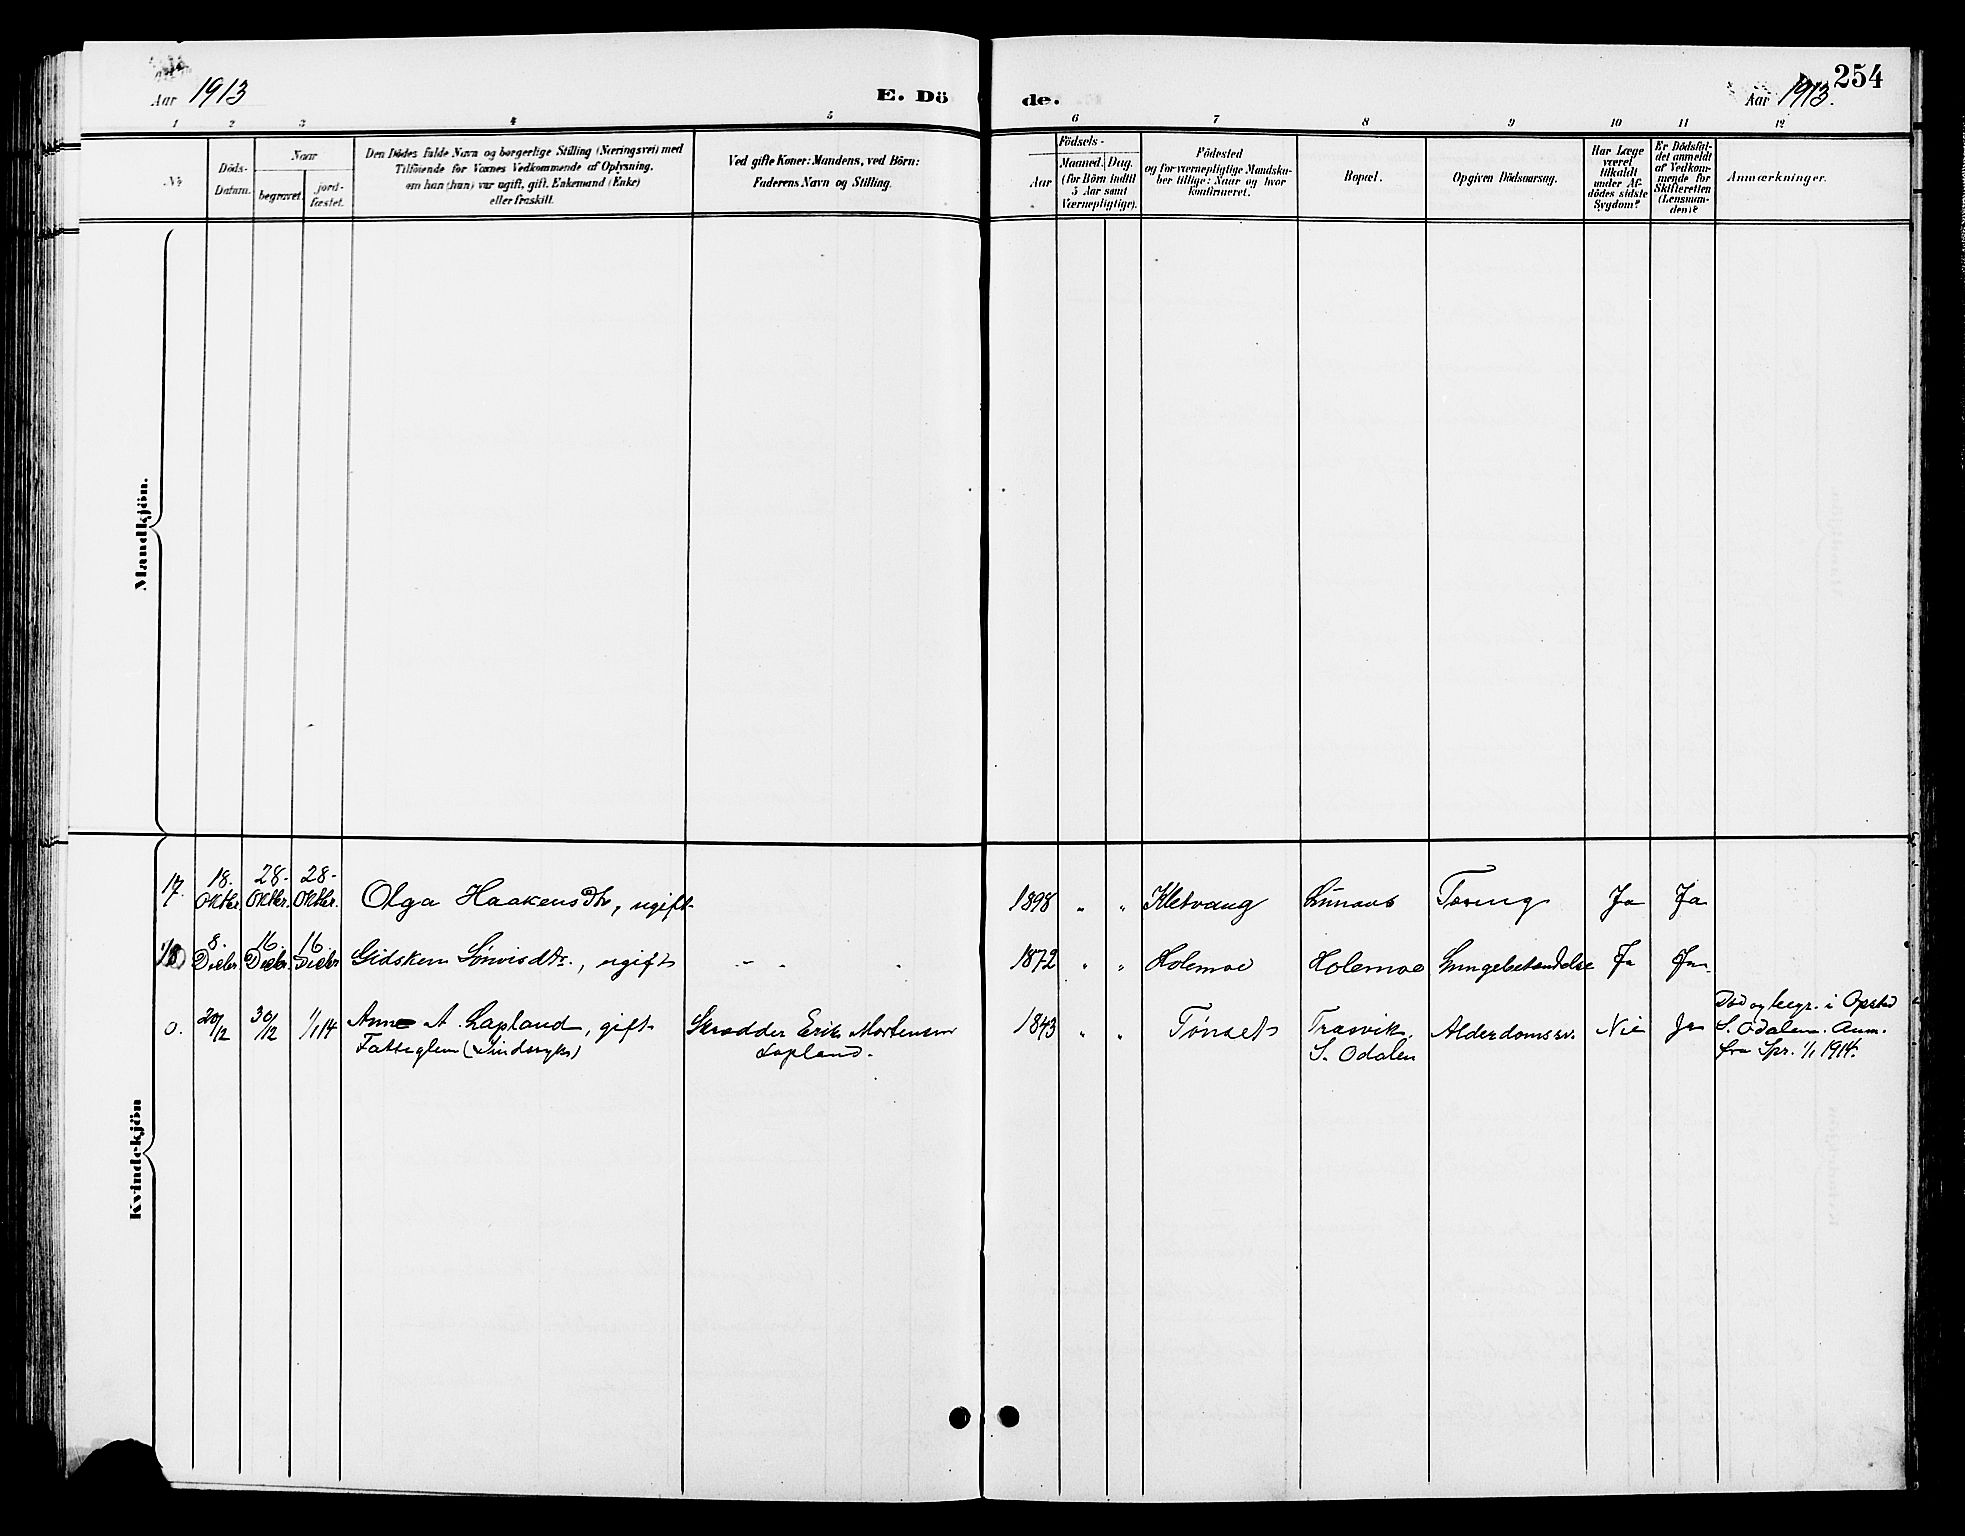 Aar 1913
E. Dö
de.
Aar 1913.
254
1 2 3 4 5 6 7 8 9 10 11 12
No
Döds-
Datum.
Naar
begravet.
jord-
fæstet.
Den Dödes fulde Navn og borgerlige Stilling (Næringsvei) med
Tilföiende for Voxnes Vedkommende af Oplysning,
om han (hun) var ugift, gift, Enkemand (Enke)
eller fraskilt.
Ved gifte Koner: Mandens, ved Börn:
Faderens Navn og Stilling.
Födsels-
Aar
Maaned. Dag.
(for Börn indtil
5 Aar samt
Værnepligtige).
Födested
og for værnepligtige Mandska-
ber tillige: Naar og hvor
konfirmeret.
Bopæl.
Opgiven Dödsaarsag.
Har Læge
været
tilkaldt
under Af-
dödes sidste
Sygdom?
Er Dödsfal-
det anmeldt
af Vedkom-
mende for
Skifteretten
(Lensman-
den)?
Anmærkninger.
Mandkjön.
Kvindekjön
17. 18. Oktbr. 28. Oktbr. 28. Oktbr. Olga Haakensdtr, ugift 1898 " " Kletvang Tæring Ja Ja
18 8. Decbr 16. Decbr. 16. Decbr Gidsken , ugift - - - 1872 " " Holemoe Holemoe Lungebetændelse Ja Ja
0. 20/12 30/12 1/1 14 Anne A. Lapland, gift Skrædder Erik Mortensen 1843 " " Tönset S. Odalen Alderdomssv. Nei Ja
Fattiglem (Sindssyk) Lapland.
Död og begr. i Opstad
S. Odalen. Anm.
fra Spr. 1/1 1914.